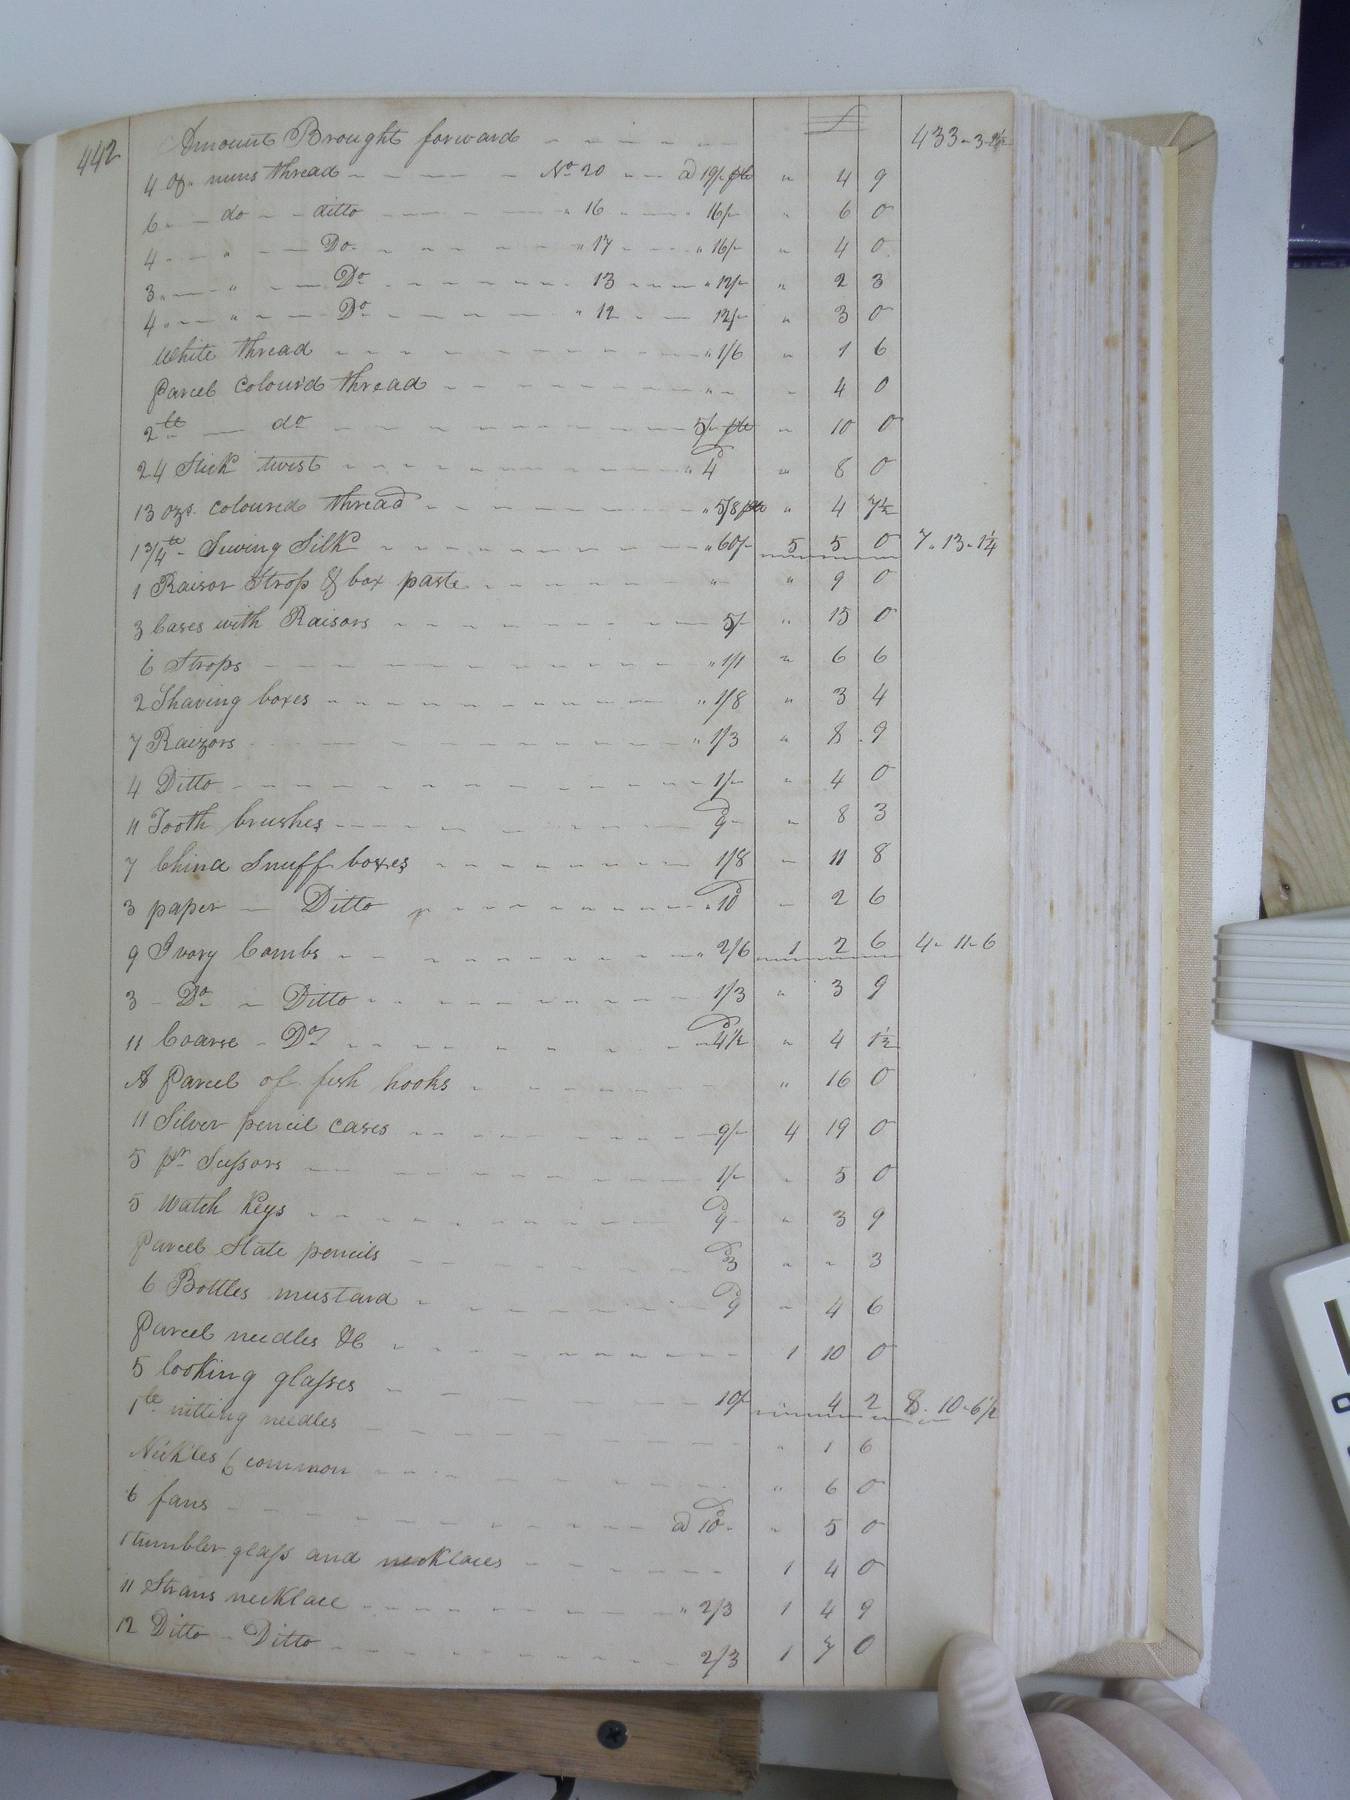 442
Amount Brought forward £ 433-3-9½
4 Oz. nuns thread No 20 @ 19/- ptb " 4 9
6 do ditto " 16 16/- " 6 0
4 " Do " 17 " 16/- " 4 0
3 " Do 13 " 12/- " 2 3
4 " Do " 12 12/- " 3 0
White thread " 1/6 " 1 6
Parcel Colour'd thread " " " 4 0
2 lb do 5/- ptb " 10 0
24 Stick twist " 4d " 8 0
13 ozs. coloured thread " 5/8 ptb " 4 7½
1¾ lb Sewing Silk " 60/- 5 5 0 7-13-1¼
1 Raisor Strop & box paste " " 9 0
3 Cases with Raisors 5/- " 15 0
6 Strops " 1/1 " 6 6
2 Shaving boxes " 1/8 " 3 4
7 Raizors " 1/3 " 8 9
4 Ditto 1/- " 4 0
11 Tooth brushes 9d " 8 3
7 China Snuff boxes 1/8 " 11 8
3 paper Ditto " 10d " 2 6
9 Ivory Combs " 2/6 1 2 6 4-11-6
3 Do Ditto 1/3 " 3 9
11 Coarse Do 4½d " 4 1½
A Parcel of fish hooks " 16 0
11 Silver pencil cases 9/- 4 19 0
5 pr Scissors 1/- " 5 0
5 Watch Keys 9d " 3 9
Parcel Slate pencils 3d " " 3
6 Bottles mustard 9d " 4 6
Parcel needles &c 1 10 0
5 looking glasses 10d " 4 2 8-10-6½
1 lb nitting needles " 1 6
6 common " 6 0
6 fans @ 10d " 5 0
1 tumbler glass and necklaces 1 4 0
11 Straus necklace " 2/3 1 4 9
12 Ditto Ditto 2/3 1 7 0